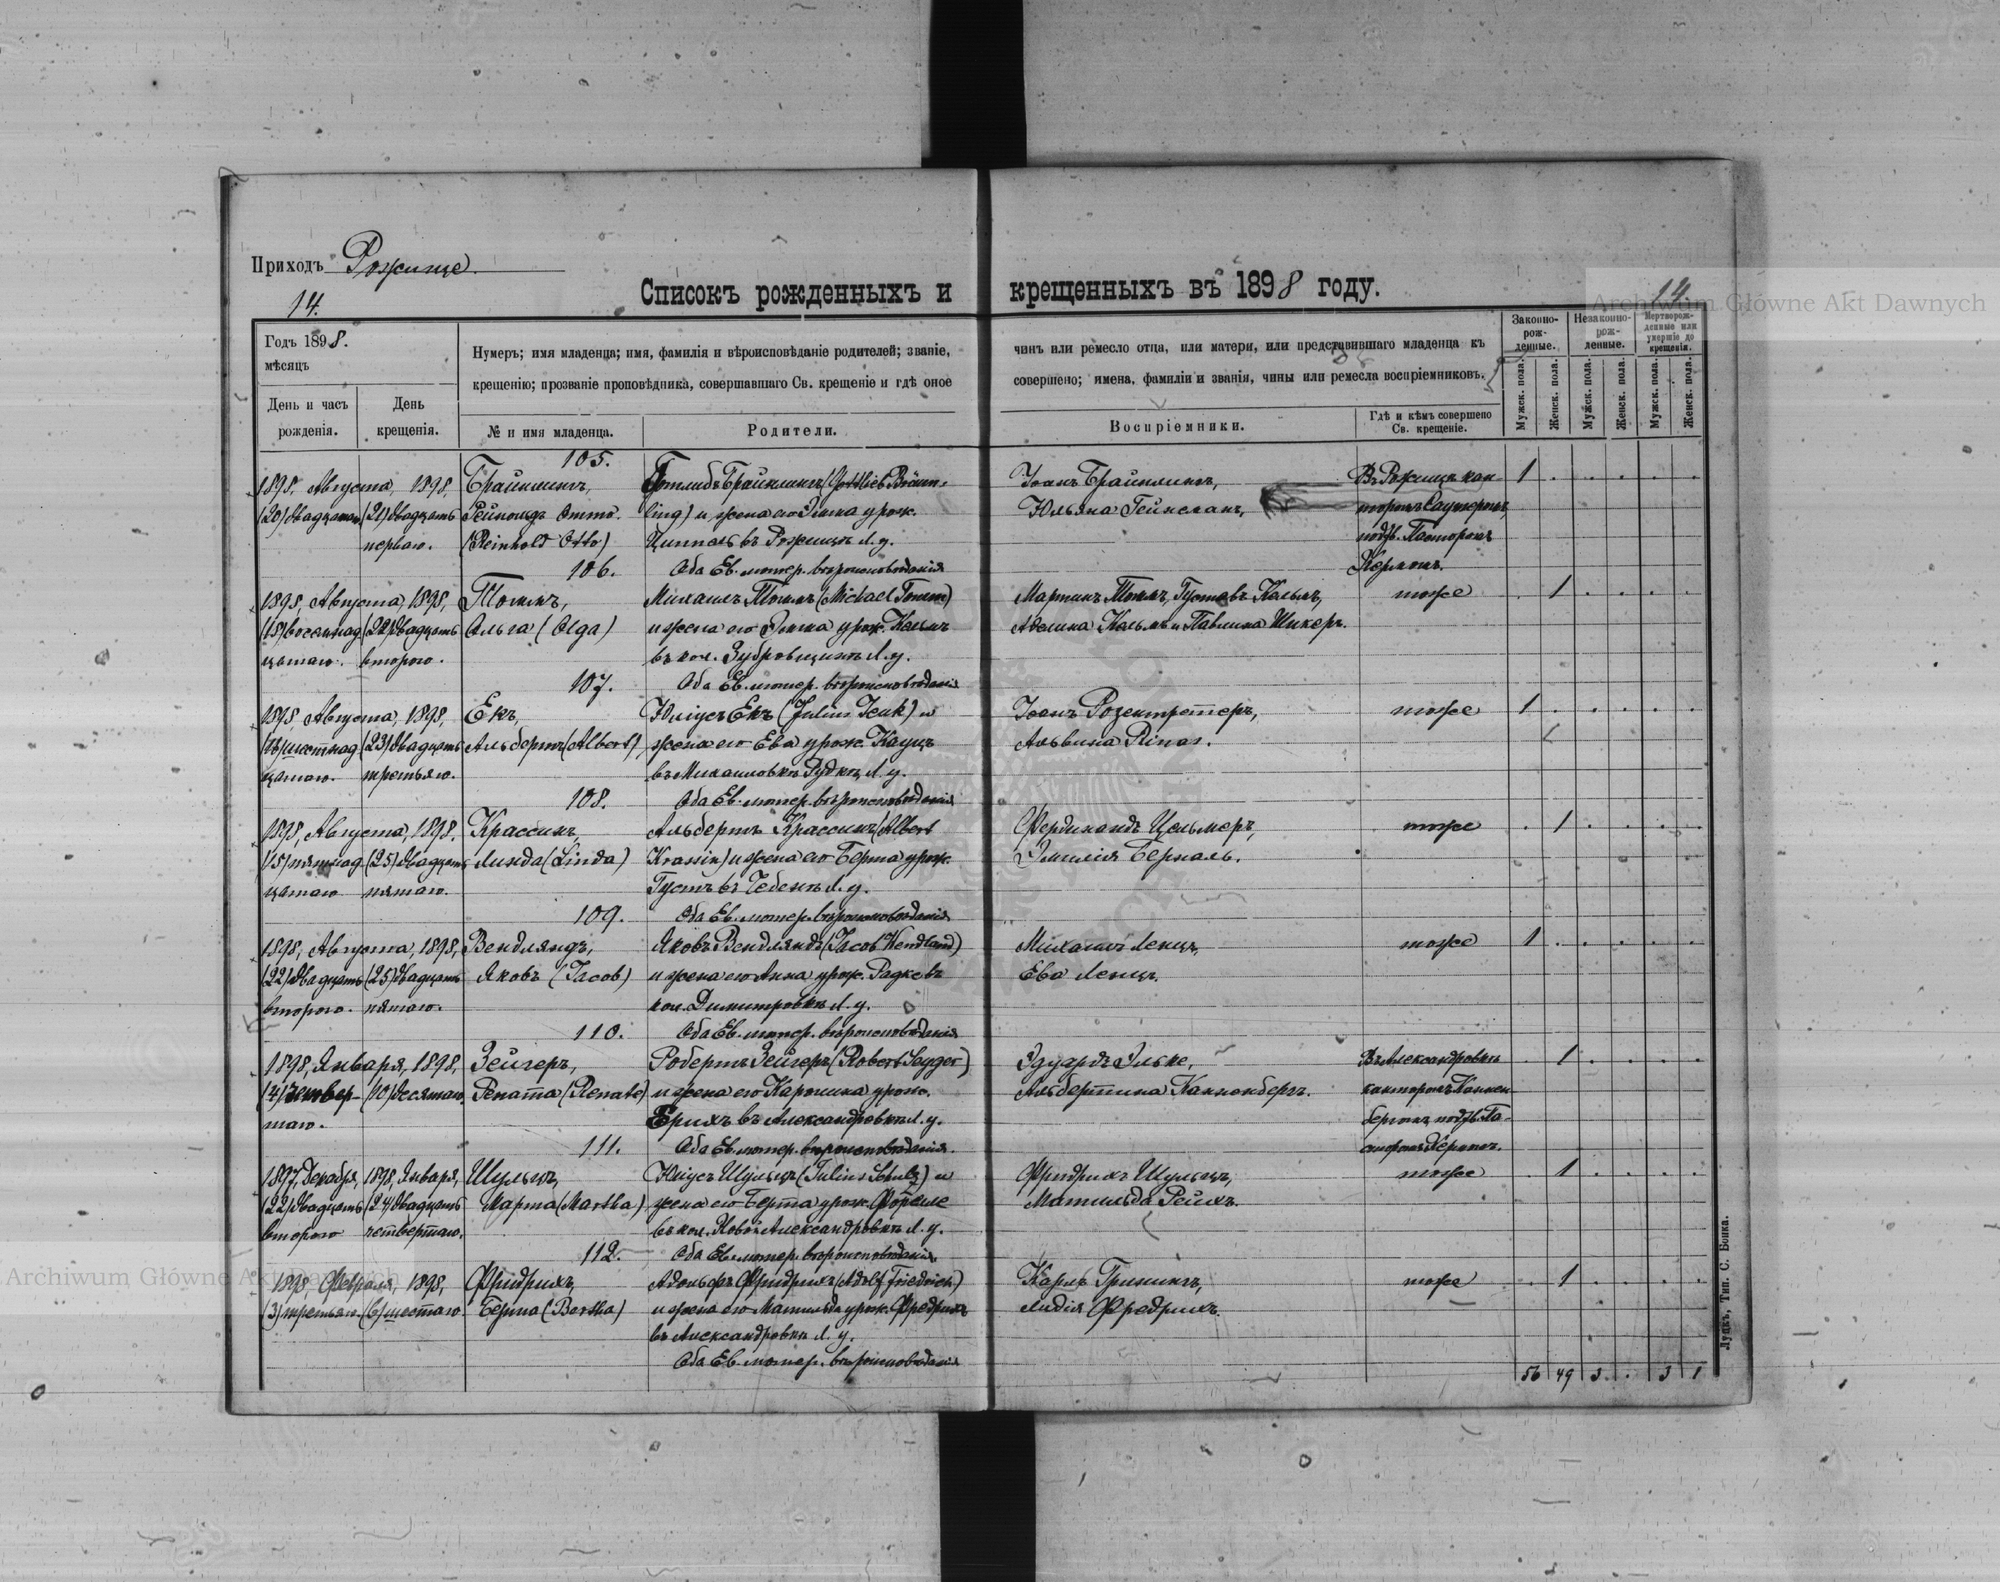 Приходъ Рожище.
14.
14.
Archiwum Główne Akt Dawnych
Списокъ рожденныхъ и крещенныхъ въ 1898 году.
Годъ 1898.
мѣсяцъ
День и часъ рожденія.
День крещенія.
Нумеръ; имя младенца; имя, фамилія и вѣроисповѣданіе родителей; званіе,
крещенію; прозваніе проповѣдника, совершавшаго Св. крещеніе и гдѣ оное
№ и имя младенца.
Родители.
чинъ или ремесло отца, или матери, или представившаго младенца къ
совершено; имена, фамиліи и званія, чины или ремесла воспріемниковъ.
Воспріемники.
Гдѣ и кѣмъ совершено
Св. крещеніе.
Законно-рож-денные.
Незаконно-рож-денные.
Мертворож-денные или умершіе до крещенія.
Мужск. пола.
Женск. пола.
Мужск. пола.
Женск. пола.
Мужск. пола.
Женск. пола.
105.
1898, Августа, 1898, Брайнлингъ, Готлибъ Брайнлингъ (Gottlieb Bräun- Іоанъ Брайнлингъ, Въ Рожищѣ кан- 1
(20) двадцатаго (21) двадцать Рейнольдъ Отто. ling) и жена его урож. Юльяна
перваго. (Reinhold Otto) въ Рожищѣ Л. у. подтв. Пасторомъ
106. Оба Ев. лютер. вѣроисповѣданія Керномъ.
1898, Августа, 1898, Томмъ, Михаилъ Томмъ (Michael Tomm) Мартинъ Томмъ, Густавъ Кельмъ, тоже 1
(18) восемнад (22) двадцать Ольга (Olga) и жена его урож. Кельмъ Аделина Кельмъ и Павлина
цатаго. второго. въ кол. Зубровщинѣ Л. у.
107. Оба Ев. лютер. вѣроисповѣданія
1898 Августа, 1898, Екъ, Юліусъ Екъ (Julius Jeuk) и Іоанъ Розентретеръ, тоже 1
(16) шестнад (23) двадцать Альбертъ (Albert) жена его Ева урож. Кауцъ Альвина Rinas.
цатаго. третьяго. въ Михаиловкѣ Рудкѣ Л. у.
108. Оба Ев. лютер. вѣроисповѣданія
1898, Августа, 1898, Крассинъ, Альбертъ Крассинъ (Albert Фердинандъ Цельмеръ, тоже 1
(15) пятнад (25) двадцать Линда (Linda) Krassin) и жена его Берта урож. Эмилія
цатаго пятаго. Густъ въ Л. у.
109. Оба Ев. лютер. вѣроисповѣданія
1898, Августа, 1898, Вендляндъ, Яковъ Вендляндъ (Jacob Wendland) Михаилъ Ленцъ, тоже 1
(22) двадцать (25) двадцать Яковъ (Jacob) и жена его Анна урож. Радке въ Ева Ленцъ.
второго. пятаго. кол. Димитровкѣ Л. у.
110. Оба Ев. лютер. вѣроисповѣданія
1898, Января, 1898, Зейгеръ, Робертъ Зейгеръ (Robert Seyger) Эдуардъ Эльке, Въ Александровкѣ 1
(4) четвер- (10) десятаго Рената (Renate) и жена его Каролина урож. Альбертина Канненбергъ. канторомъ Каннен
таго. Ерихъ въ Александровкѣ Л. у. бергомъ подтв. Па-
111. Оба Ев. лютер. вѣроисповѣданія. сторомъ Керномъ.
1897, Декабря, 1898, Января, Шульцъ, Юліусъ Шульцъ (Julius Schulz) и Фридрихъ Шульцъ, тоже 1
(22) двадцать (24) двадцать Марта (Martha) жена его Берта урож. Матильда Рейхъ.
второго четвертаго. въ кол. Новой Александровкѣ Л. у.
112. Оба Ев. лютер. вѣроисповѣданія
1898, Февраля, 1898, Фридрихъ, Адольфъ Фридрихъ (Adolf Friedrich) Карлъ Гринингъ, тоже 1
(3) третьяго (6) шестаго Берта (Bertha) и жена его Матильда урож. Фредрихъ Лидія Фредрихъ.
въ Александровкѣ Л. у.
Оба Ев. лютер. вѣроисповѣданія
56 49 3 . 3 1
Луцкъ, Тип. С. Бонка.
Archiwum Główne Akt Dawnych